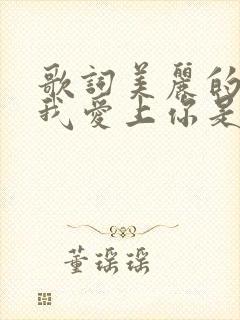 歌詞美麗的
我愛上你是
董瑶瑶